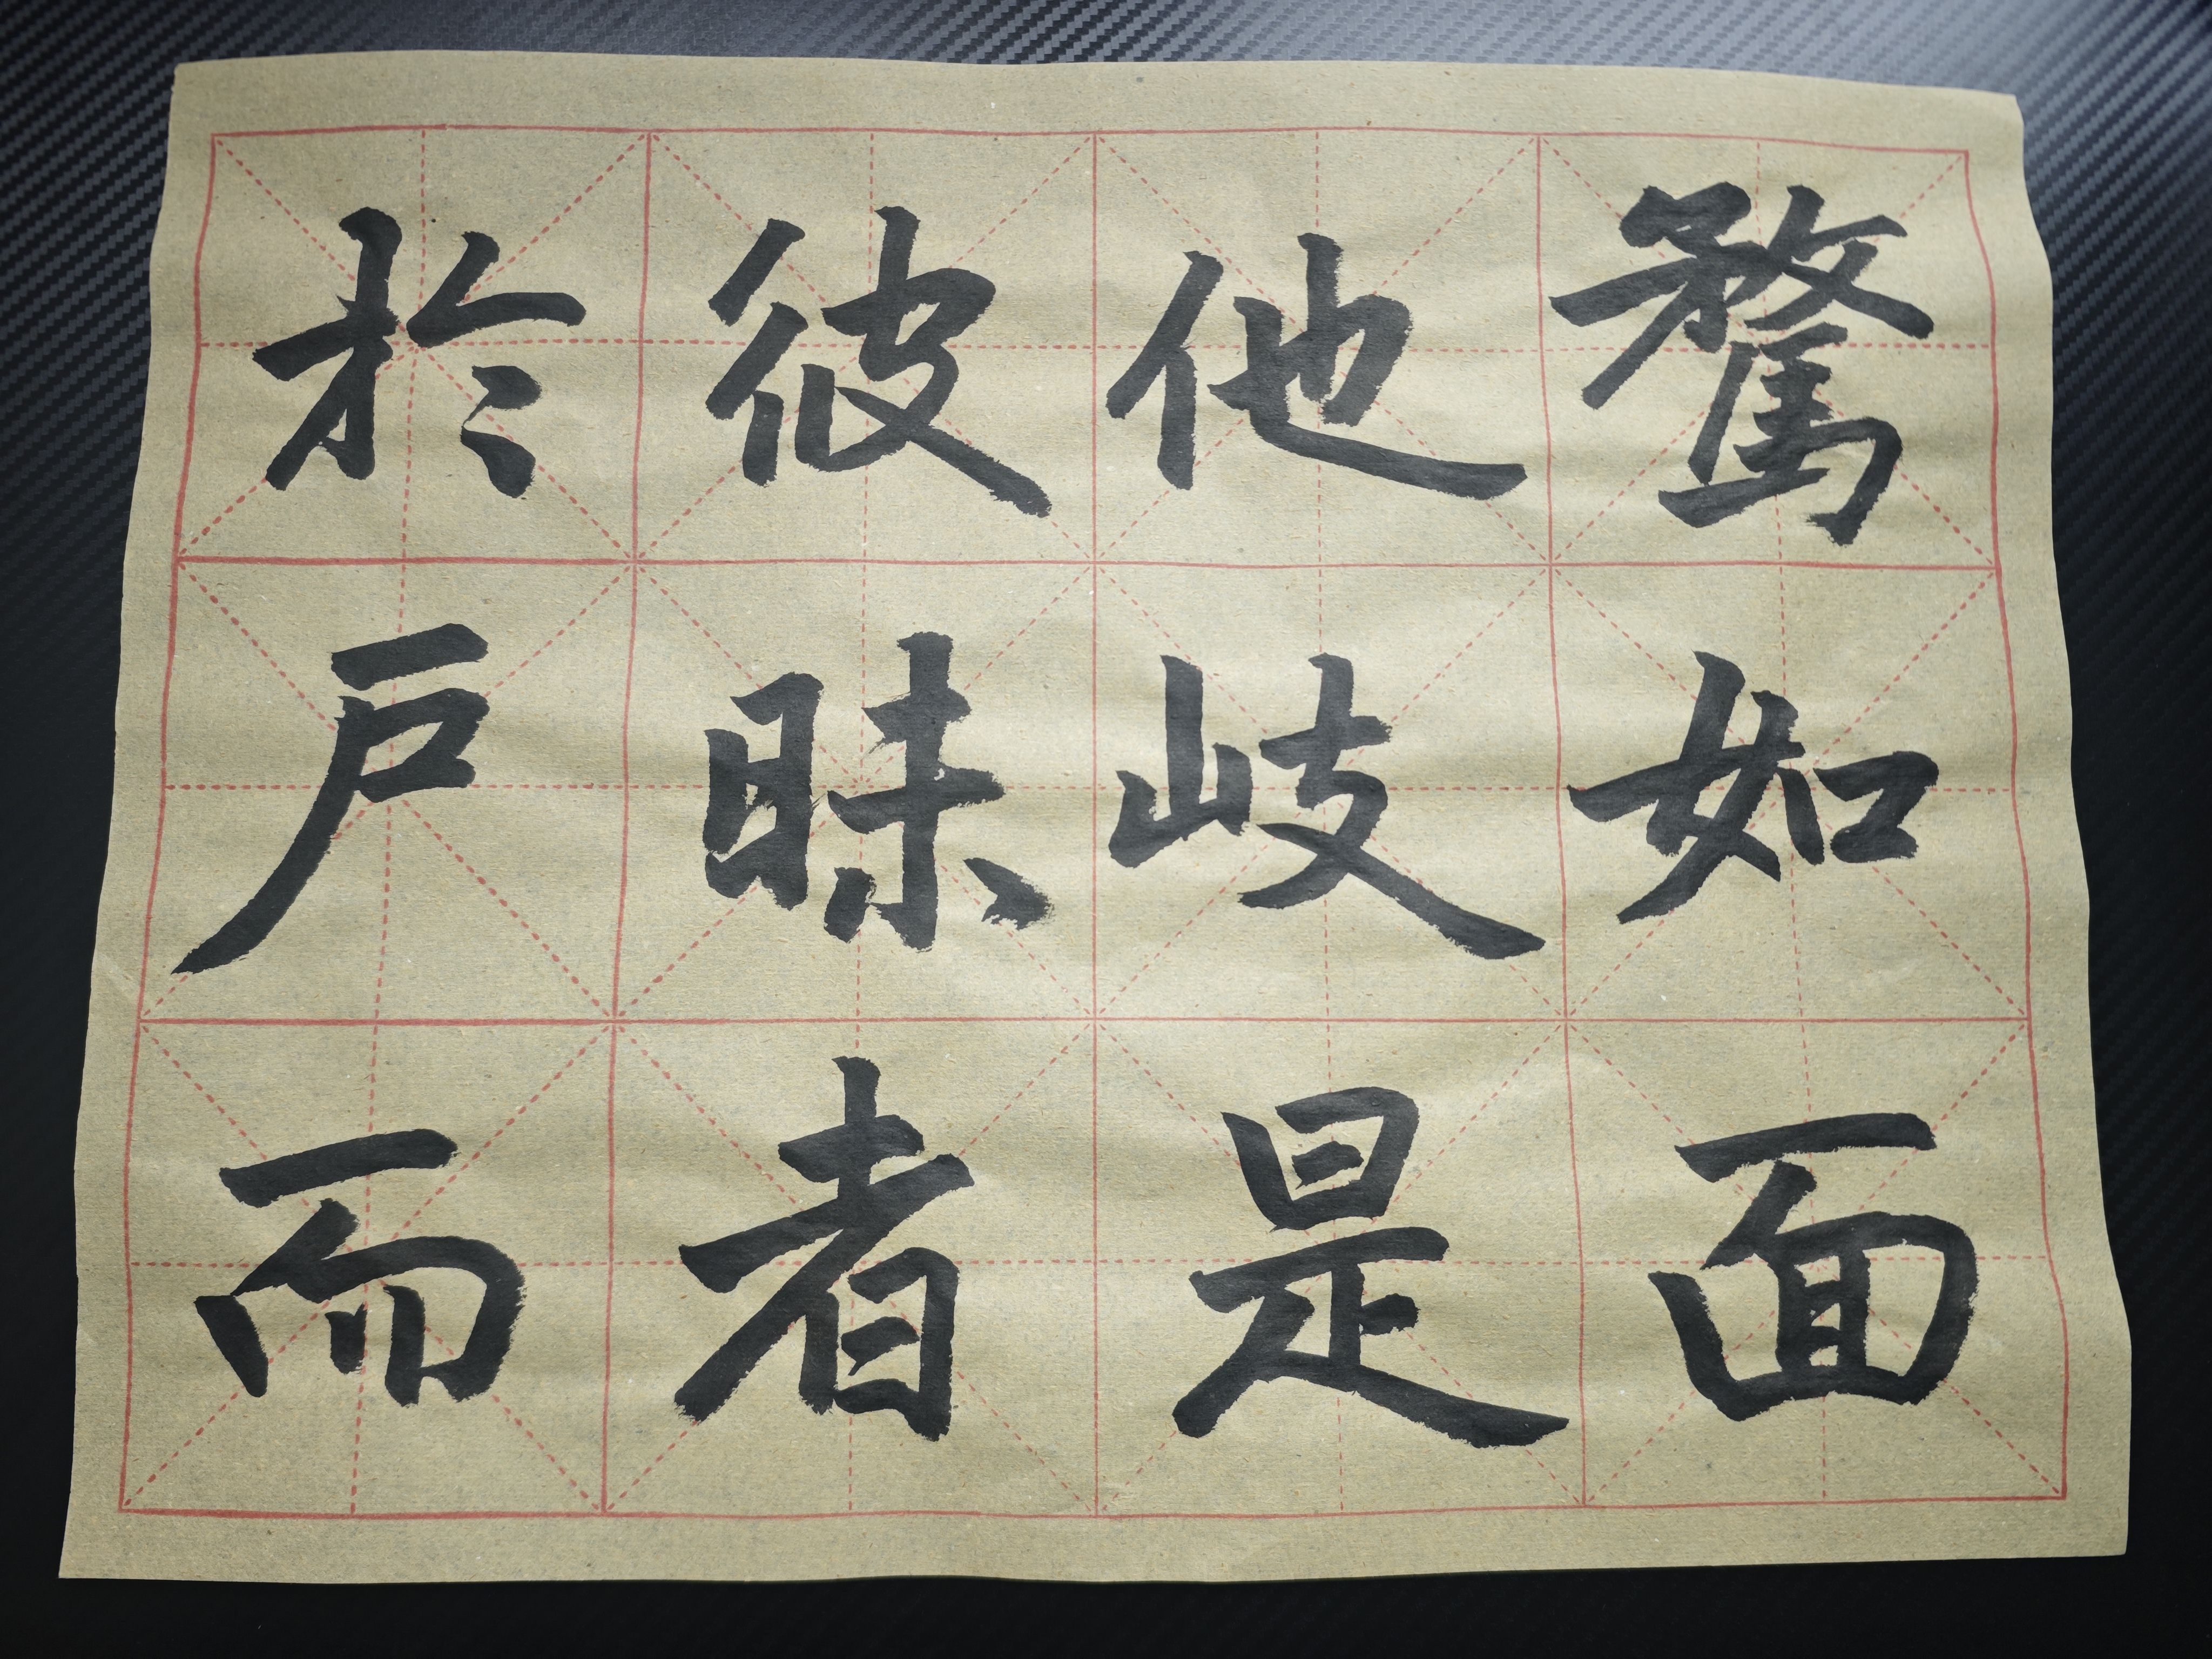 於戶而
彼昧者
他岐是
騖如面